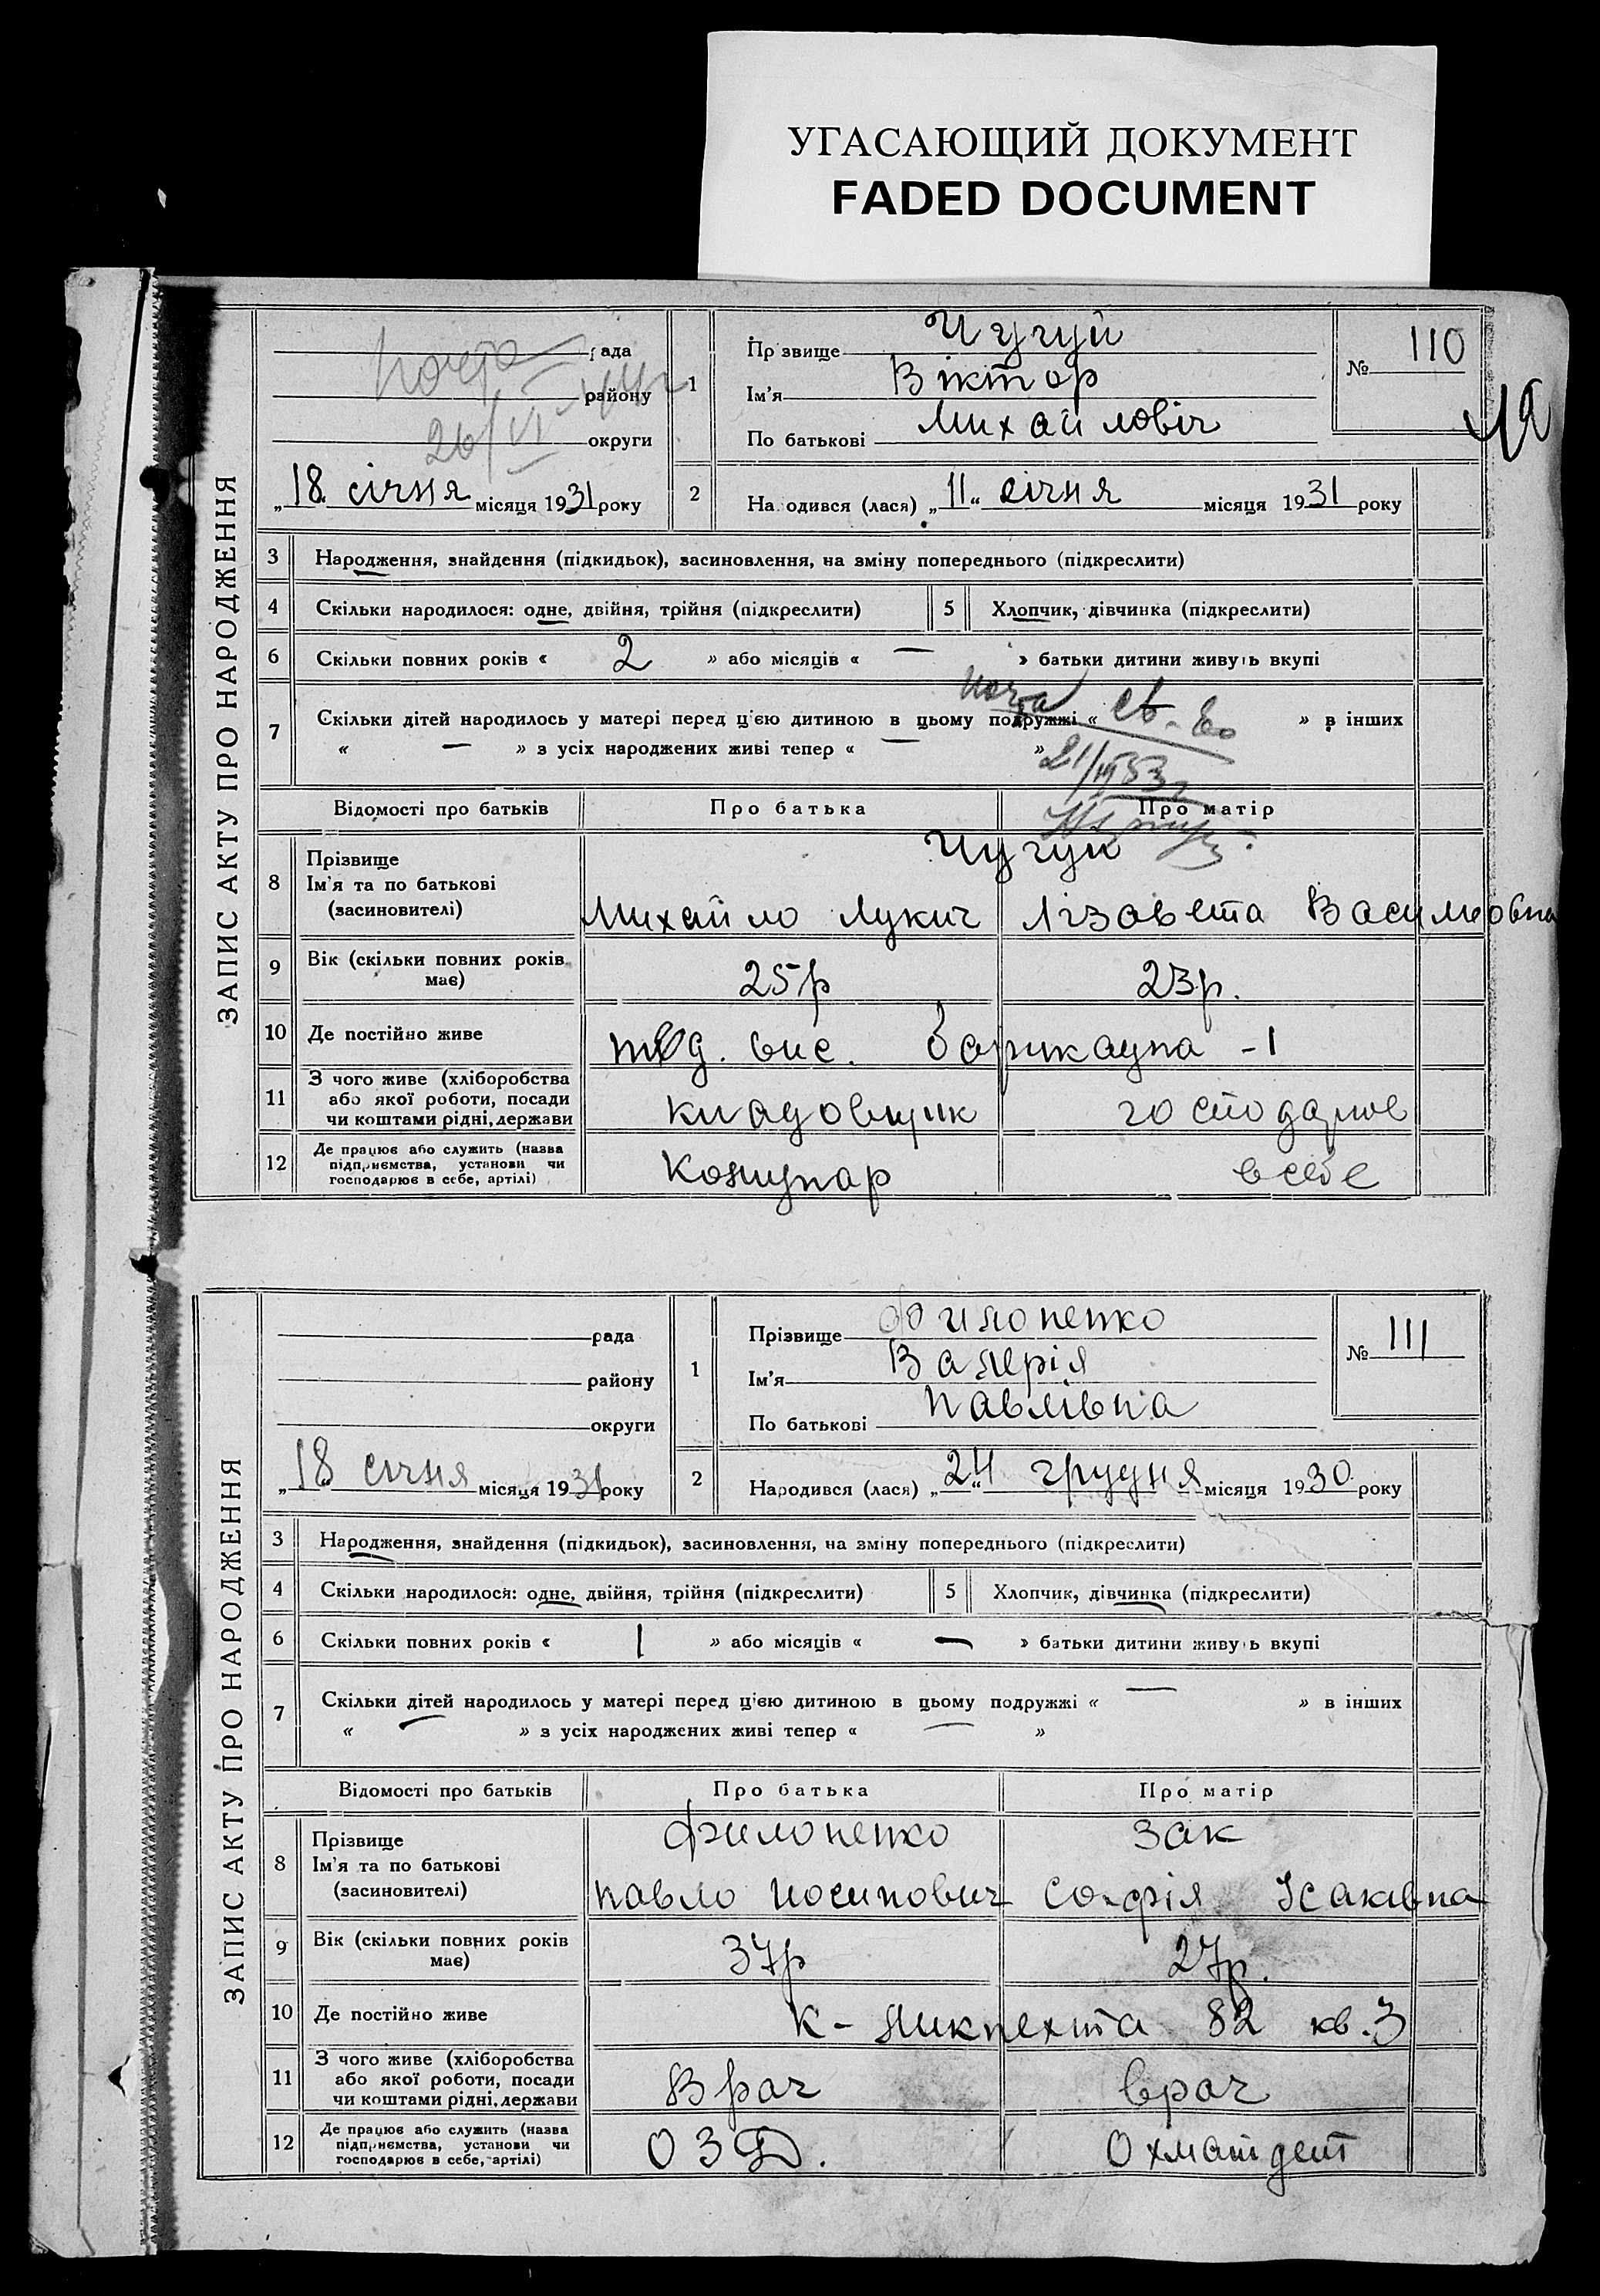 УГАСАЮЩИЙ ДОКУМЕНТ
FADED DOCUMENT
ЗАПИС АКТУ ПРО НАРОДЖЕННЯ
рада
району
округи
„18“ січня місяця 1931 року
1
Прізвище Чугуй
Ім'я Віктор
По батькові Михайловіч
№ 110
2
Народився (лася) „11“ січня місяця 1931 року
3 Народження, знайдення (підкидьок), засиновлення, на зміну попереднього (підкреслити)
4 Скільки народилося: одне, двійня, трійня (підкреслити) 5 Хлопчик, дівчинка (підкреслити)
6 Скільки повних років « 2 » або місяців « — » батьки дитини живуть вкупі
7 Скільки дітей народилось у матері перед цією дитиною в цьому подружжі « » в інших
« — » з усіх народжених живі тепер « — »
21/III 53
Відомості про батьків Про батька Про матір
8 Прізвище
Ім'я та по батькові
(засиновителі)
Чугуй
Михайло Лукич Лізавета Василиовна
9 Вік (скільки повних років має) 25р 23р.
10 Де постійно живе
11 З чого живе (хліборобства або якої роботи, посади чи коштами рідні, держави кладовщик господарює
12 Де працює або служить (назва підприємства, установи чи господарює в себе, артілі) в себе
ЗАПИС АКТУ ПРО НАРОДЖЕННЯ
рада
району
округи
„18“ січня місяця 1931 року
1
Прізвище Филоненко
Ім'я Валерія
По батькові Павлівна
№ 111
2
Народився (лася) „24“ грудня місяця 1930 року
3 Народження, знайдення (підкидьок), засиновлення, на зміну попереднього (підкреслити)
4 Скільки народилося: одне, двійня, трійня (підкреслити) 5 Хлопчик, дівчинка (підкреслити)
6 Скільки повних років « 1 » або місяців « — » батьки дитини живуть вкупі
7 Скільки дітей народилось у матері перед цією дитиною в цьому подружжі « — » в інших
« — » з усіх народжених живі тепер « — »
Відомості про батьків Про батька Про матір
8 Прізвище
Ім'я та по батькові
(засиновителі)
Филоненко Зак
Павло Иосипович Софія Ісаківна
9 Вік (скільки повних років має) 37р 27р.
10 Де постійно живе К-Ликнехта 82 кв.3
11 З чого живе (хліборобства або якої роботи, посади чи коштами рідні, держави Врач врач
12 Де працює або служить (назва підприємства, установи чи господарює в себе, артілі) ОЗД. Охматдет